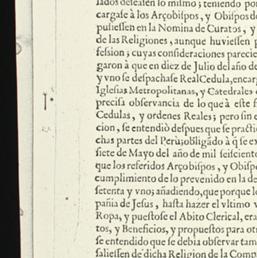 lados deseasen lo mismo; teniendo por
cargase à los Arçobispos, y Obispos de
pusiessen en la Nomina de Curatos, y
de las Religiones, aunque huviessen p
fession; cuyas consideraciones parecie
garon à que en diez de Julio del año de
y vno se despachase Real Cedula, encar
Iglesias Metropolitanas, y Catedrales
precisa observancia de lo que à este f
Cedulas, y ordenes Reales; pero sin e
cion, se entendiò despues que se practic
chas partes del Perù; obligado à q̃ se ex
siete de Mayo del año de mil seiscient
que los referidos Arçobispos, y Obisp
cumplimiento de lo prevenido en la de
setenta y vno; añadiendo, que porque l
pañia de Jesus, hasta hazer el vltimo v
Ropa, y puestose el Abito Clerical, era
tos, y Beneficios, y propuestos para ot
se entendido que se debia observar tam
saliessen de dicha Religion de la Comp